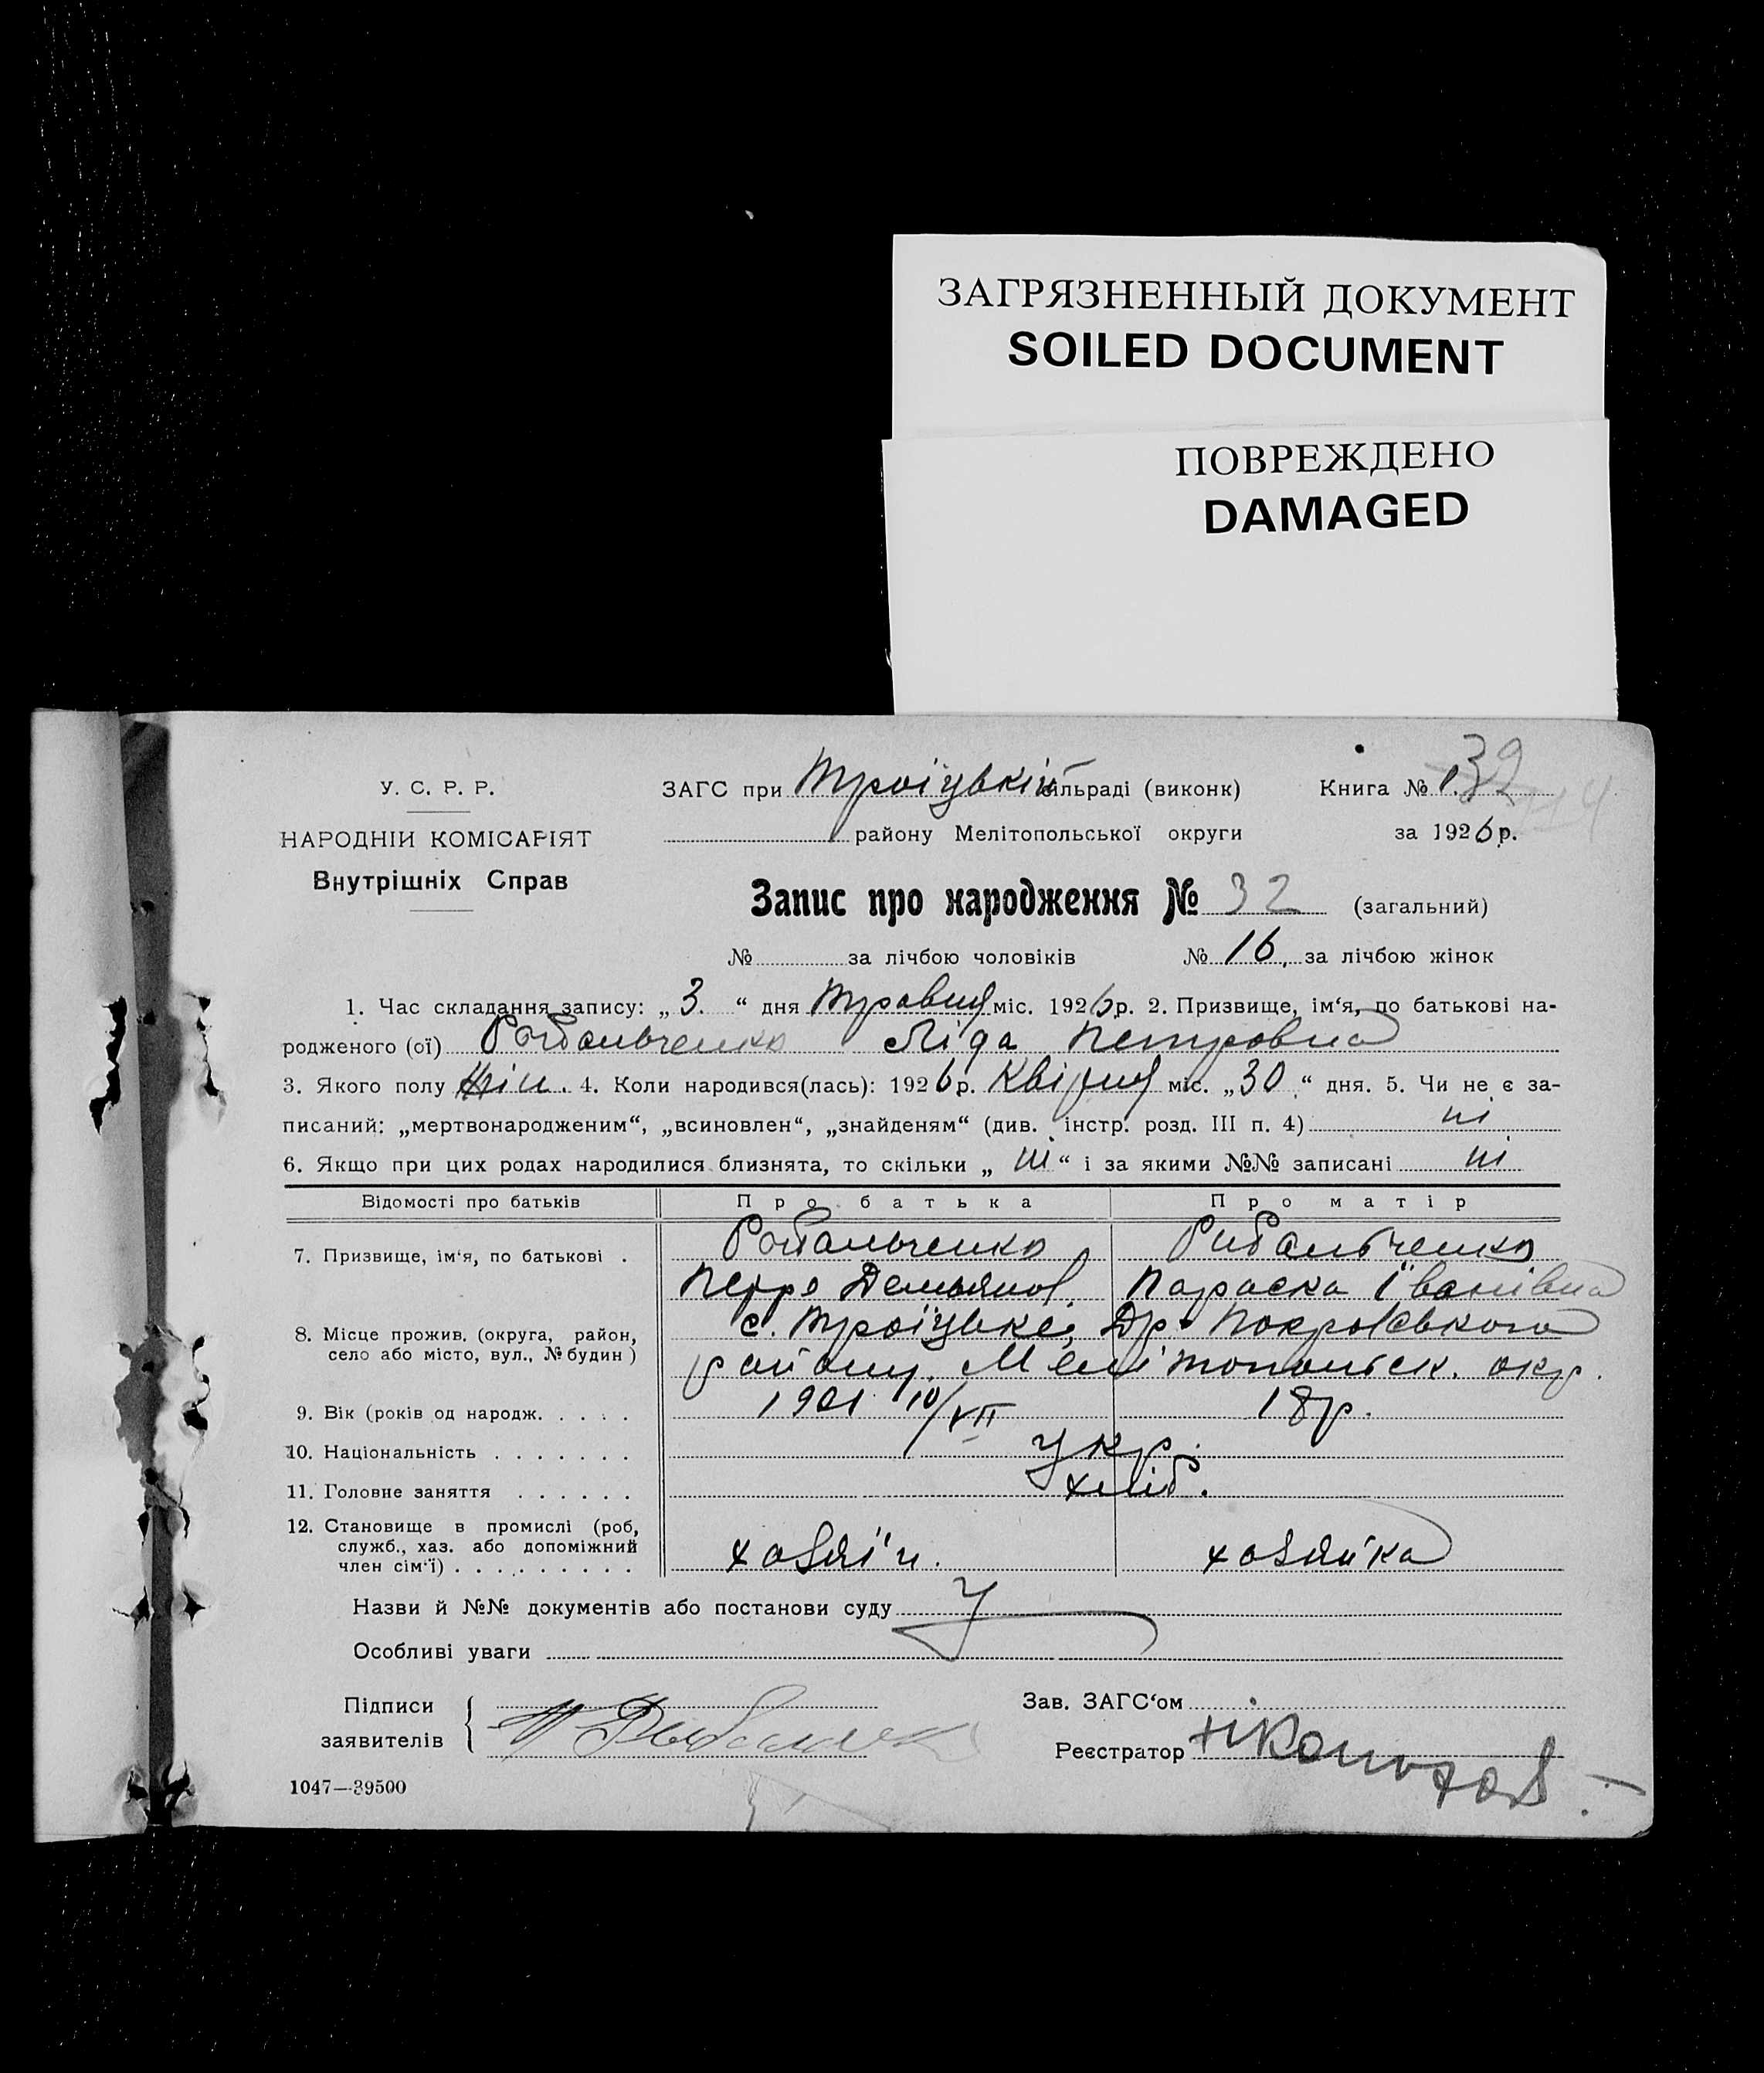 ЗАГРЯЗНЕННЫЙ ДОКУМЕНТ
SOILED DOCUMENT
ПОВРЕЖДЕНО
DAMAGED
32
У. С. Р. Р.
ЗАГС при Троїцькій сільраді (виконк)
Книга № 1.
НАРОДНІЙ КОМІСАРІЯТ
району Мелітопольської округи
за 1926 р.
Внутрішніх Справ
Запис про народження № 32 (загальний)
№ за лічбою чоловіків № 16 за лічбою жінок
1. Час складання запису: „3.“ дня травня міс. 1926 р. 2. Призвище, ім‘я, по батькові на-
родженого (ої) Рибальченко Ліда Петровна
3. Якого полу жін. 4. Коли народився(лась): 1926 р. Квітня міс. „30“ дня. 5. Чи не є за-
писаний: „мертвонародженим“, „всиновлен“, „знайденям“ (див. інстр. розд. III п. 4) ні
6. Якщо при цих родах народилися близнята, то скільки „ні“ і за якими №№ записані ні
Відомості про батьків Про батька Про матір
7. Призвище, ім‘я, по батькові . Рибальченко Рибальченко
Петро Демьянов. Параска Іванівна
8. Місце прожив. (округа, район, село або місто, вул., № будин) с. Троїцьке, Покровського
району. Мелітопольск. окр.
9. Вік (років од народж. . . . . 1901 10/VII 18 р.
10. Національність . . . . . . . укр.
11. Головне заняття . . . . . . хліб.
12. Становище в промислі (роб,
служб., хаз. або допоміжний
член сім‘ї) . . . . . . . . . хозяїн. хозяйка
Назви й №№ документів або постанови суду
Особливі уваги
Підписи
заявителів
Зав. ЗАГС‘ом
Реєстратор
1047—39500